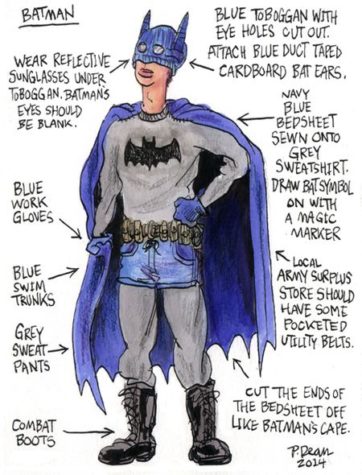 BATMAN
BLUE TOBOGGAN WITH
EYE HOLES CUT OUT.
ATTACH BLUE DUCT TAPED
CARDBOARD BAT EARS.
WEAR REFLECTIVE
SUNGLASSES UNDER
TOBOGGAN. BATMAN'S
EYES SHOULD
BE BLANK.
NAVY
BLUE
BEDSHEET
SEWN ONTO
GREY
SWEATSHIRT.
DRAW BAT SYMBOL
ON WITH
A MAGIC
MARKER
BLUE
WORK
GLOVES
BLUE
SWIM
TRUNKS
LOCAL
ARMY SURPLUS
STORE SHOULD
HAVE SOME
POCKETED
UTILITY BELTS.
GREY
SWEAT
PANTS
CUT THE ENDS OF
THE BEDSHEET OFF
LIKE BATMAN'S CAPE.
COMBAT
BOOTS
P. Dean
2014